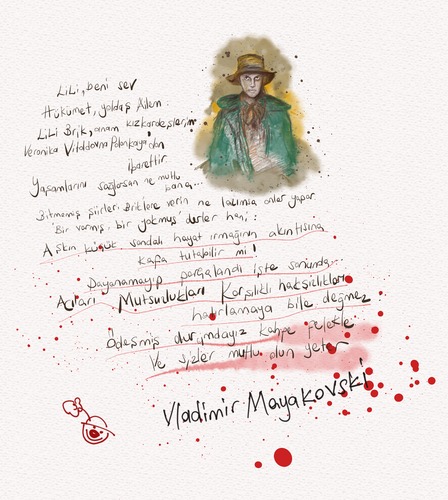 LiLi, beni sev
Hükümet, yoldaş Ailem:
LiLi Brik, anam kızkardeşlerim
Veronika Vitoldovna Polonkaya'dan
ibarettir.
Yaşamlarını sağlarsan ne mutlu
bana...
Bitmemiş şiirleri Briklere verin ne lazımsa onlar yapar
'Bir varmış, bir yokmuş' derler hani:
Aşkın küçük sandalı hayat ırmağının akıntısına
kafa tutabilir mi!
Dayanamayıp parçalandı işte sonunda...
Acıları Mutsuzlukları Karşılıklı haksızlıkları
hatırlamaya bile değmez
Ödeşmiş durumdayız kahpe felekle
Ve sizler mutlu olun yeter
Vladimir Mayakovski